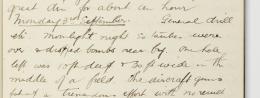 great din for about an hour
Monday 3rd September. General drill
etc. Moonlight night so taubes were
over & dropped bombs near by. One hole
left was 10ft deep & 30 ft wide in the
middle of a field. The aircraft guns
put a tremendous effort with no result